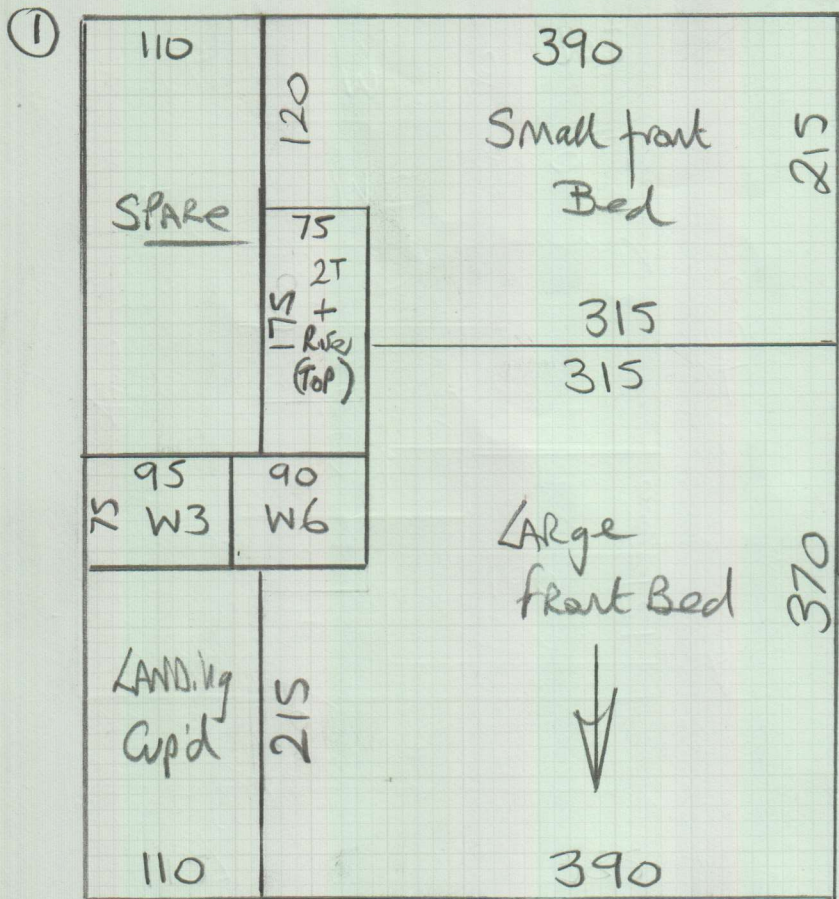 ①
110
390
120
Small front
Bed
215
SPARe
75
2T
+
Riser
(TOP)
175
315
315
95
90
75
W3
W6
LARge
fRont Bed
370
LANDiNg
Cup'd
215
110
390